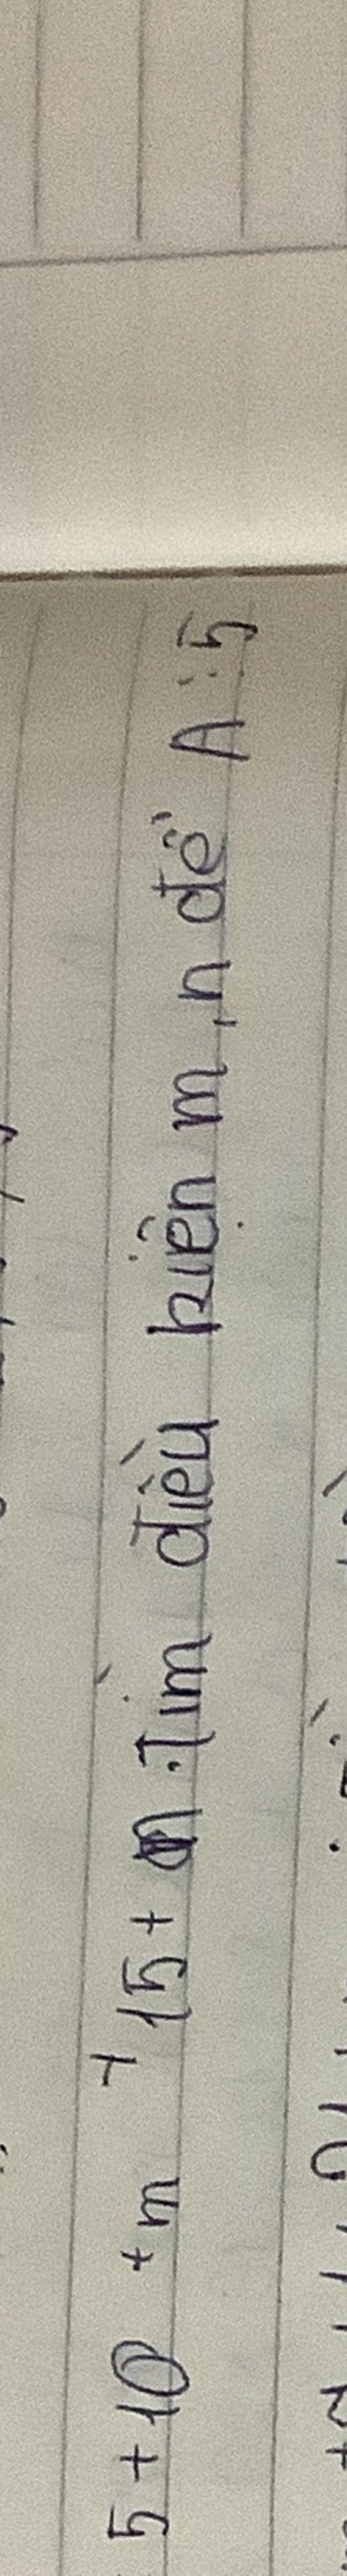 5 + 10 + m + 15 + n. Tìm điều kiện m, n để A ⋮ 5